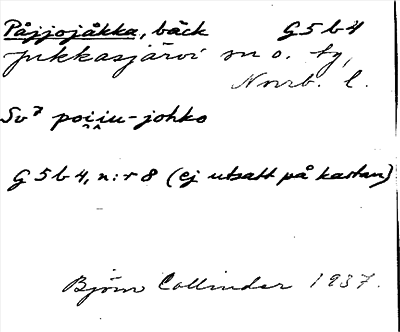 Påjjojåkka, bäck G5b4
Jukkasjärvi sn o. tg,
Norrb. l.
Sv7 poi̯i̯u-johko
G5b4, n:r 8 (ej utsatt på kartan)
Björn Collinder 1937.